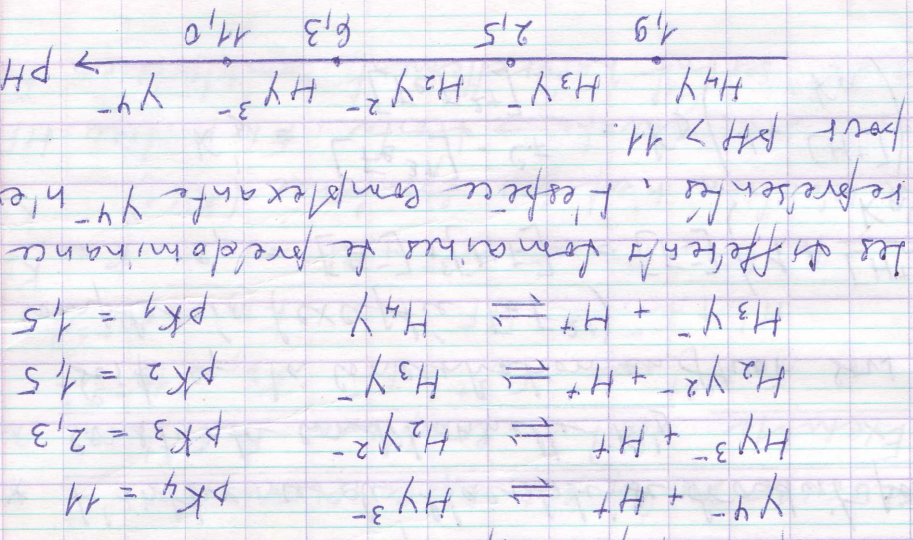 Y⁴⁻ + H⁺ ⇌ HY³⁻ pK₄ = 11
HY³⁻ + H⁺ ⇌ H₂Y²⁻ pK₃ = 2,3
H₂Y²⁻ + H⁺ ⇌ H₃Y⁻ pK₂ = 1,5
H₃Y⁻ + H⁺ ⇌ H₄Y pK₁ = 1,5
Les différents domaines de prédominance
représentés, l'espèce complexante Y⁴⁻ n'e
pour pH > 11.
H₄Y H₃Y⁻ H₂Y²⁻ HY³⁻ Y⁴⁻
→ pH
1,9 2,5 6,3 11,0